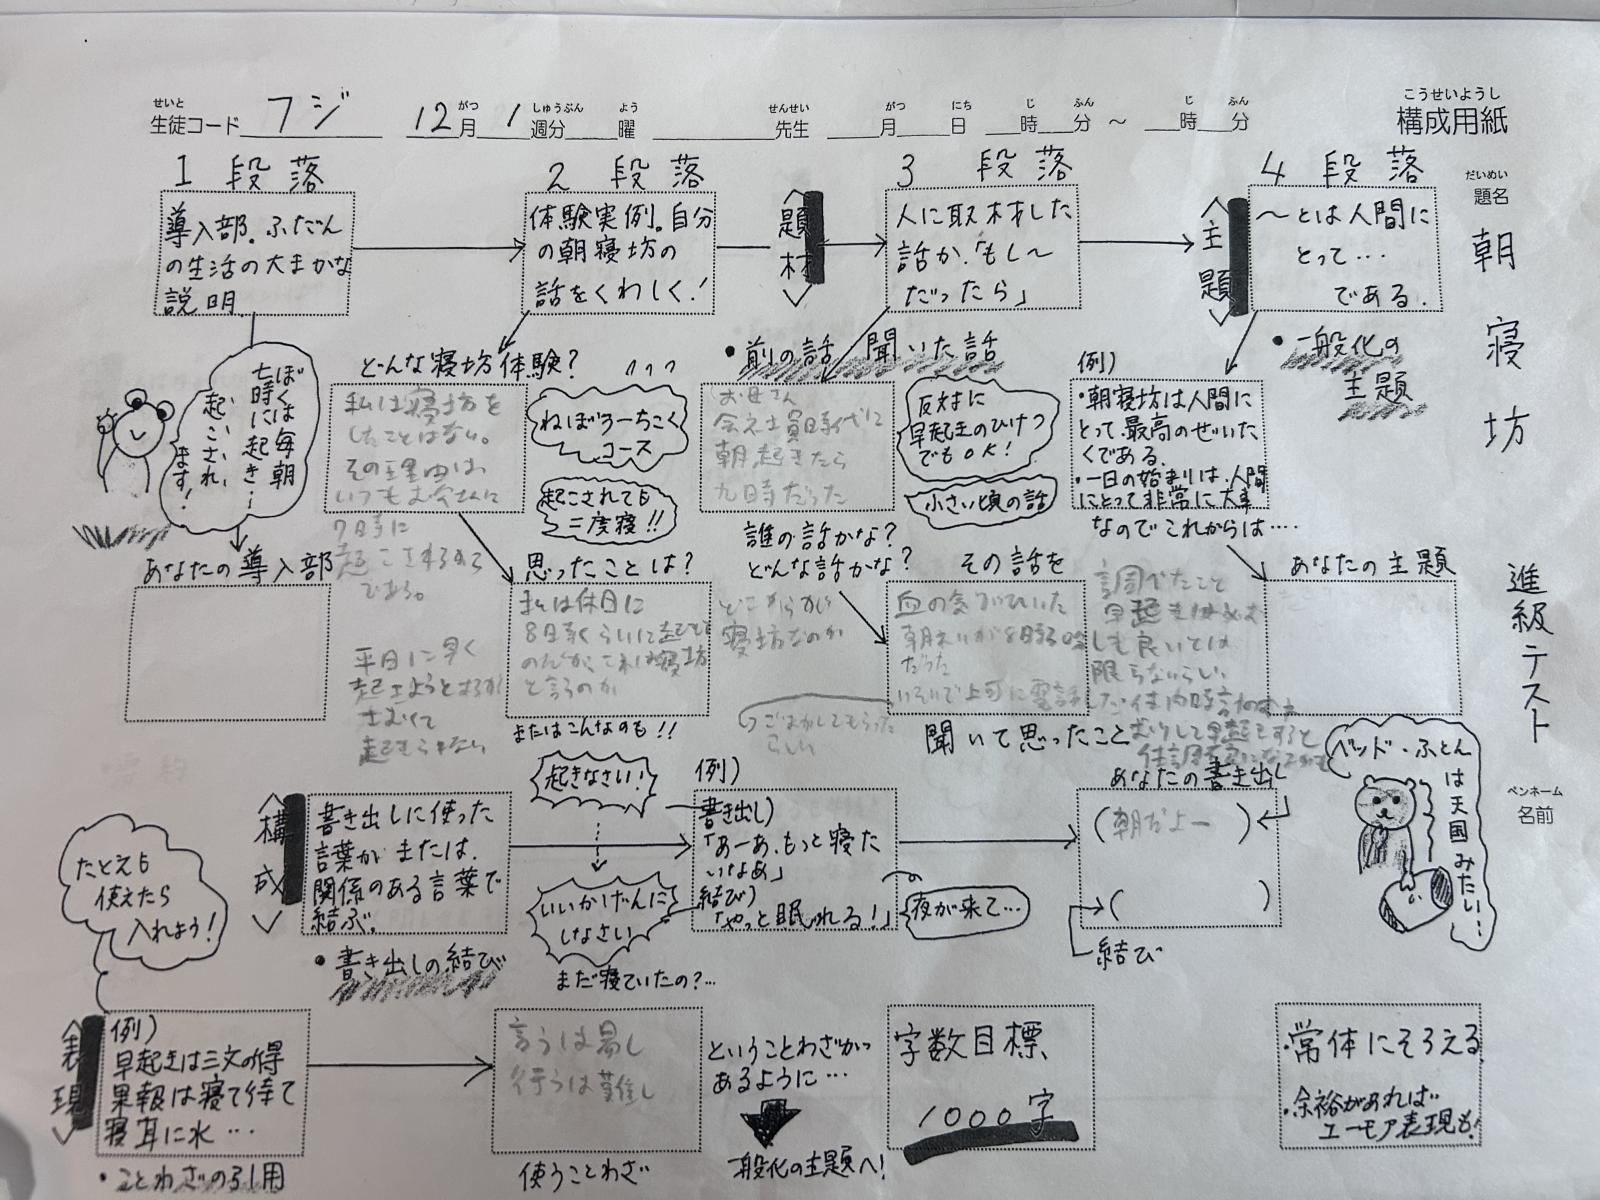 せいと
生徒コード フジ
12月 1週分 曜
がつ しゅうぶん よう
せんせい
先生
がつ にち じ ふん じ ふん
月 日 時 分 ～ 時 分
こうせいようし
構成用紙
だいめい
題名
朝寝坊
進級テスト
ペンネーム
名前
1段落
導入部。ふだん
の生活の大まかな
説明
2段落
体験実例。自分
の朝寝坊の
話をくわしく！
〈題材〉
3段落
人に取材した
話か、「もし～
だったら」
〈主題〉
4段落
～とは人間に
とって…
である。
ぼくは毎朝
七時に起き…
起こされ、
ます！
あなたの導入部
どんな寝坊体験？
私は寝坊を
したことはない。
その理由は、
いつもお母さんに
7時に
起こされるから
である。
平日に早く
起きようとするが
さむくて
起きられない
ねぼすーちこく
コース
起こされても
三度寝！！
思ったことは？
私は休日に
8時くらいに起きる
のだが、これは寝坊
と言うのか
またはこんなのも！！
・前の話 聞いた話
お母さん
会社員時代に
朝、起きたら
九時だった
反対に
早起きのひけつ
でもOK！
小さい頃の話
誰の話かな？
どんな話かな？
どこからが
寝坊なのか
その話を
血の気がひいた
朝礼が8時30分
だった
いそいで上司に電話した
ごまかしてもらった
らしい
聞いて思ったこと
例）
・朝寝坊は人間に
とって、最高のぜいた
くである。
・一日の始まりは、人間
にとって非常に大事
なのでこれからは…．
・一般化の
主題
調べたこと
早起きは必ず
しも良いとは
限らないらしい。
むりして早起きすると
あなたの主題
〈構成〉
書き出しに使った
言葉がまたは、
関係のある言葉で
結ぶ。
・書き出しの結び
起きなさい！
いいかげんに
しなさい
まだ寝ていたの？…
例）
書き出し）
「あーあ、もっと寝た
いなあ」
結び）
「やっと眠れる！」
夜が来て…
あなたの書き出し
（朝だよー ）
（ ）
結び
ベッド・ふとん
は天国みたい…
たとえも
使えたら
入れよう！
〈表現〉
例）
早起きは三文の得
果報は寝て待て
寝耳に水…
・ことわざの引用
言うは易し
行うは難し
使うことわざ
ということわざが
あるように…
一般化の主題へ！
字数目標
1000字
・常体にそろえる
・余裕があれば
ユーモア表現も！